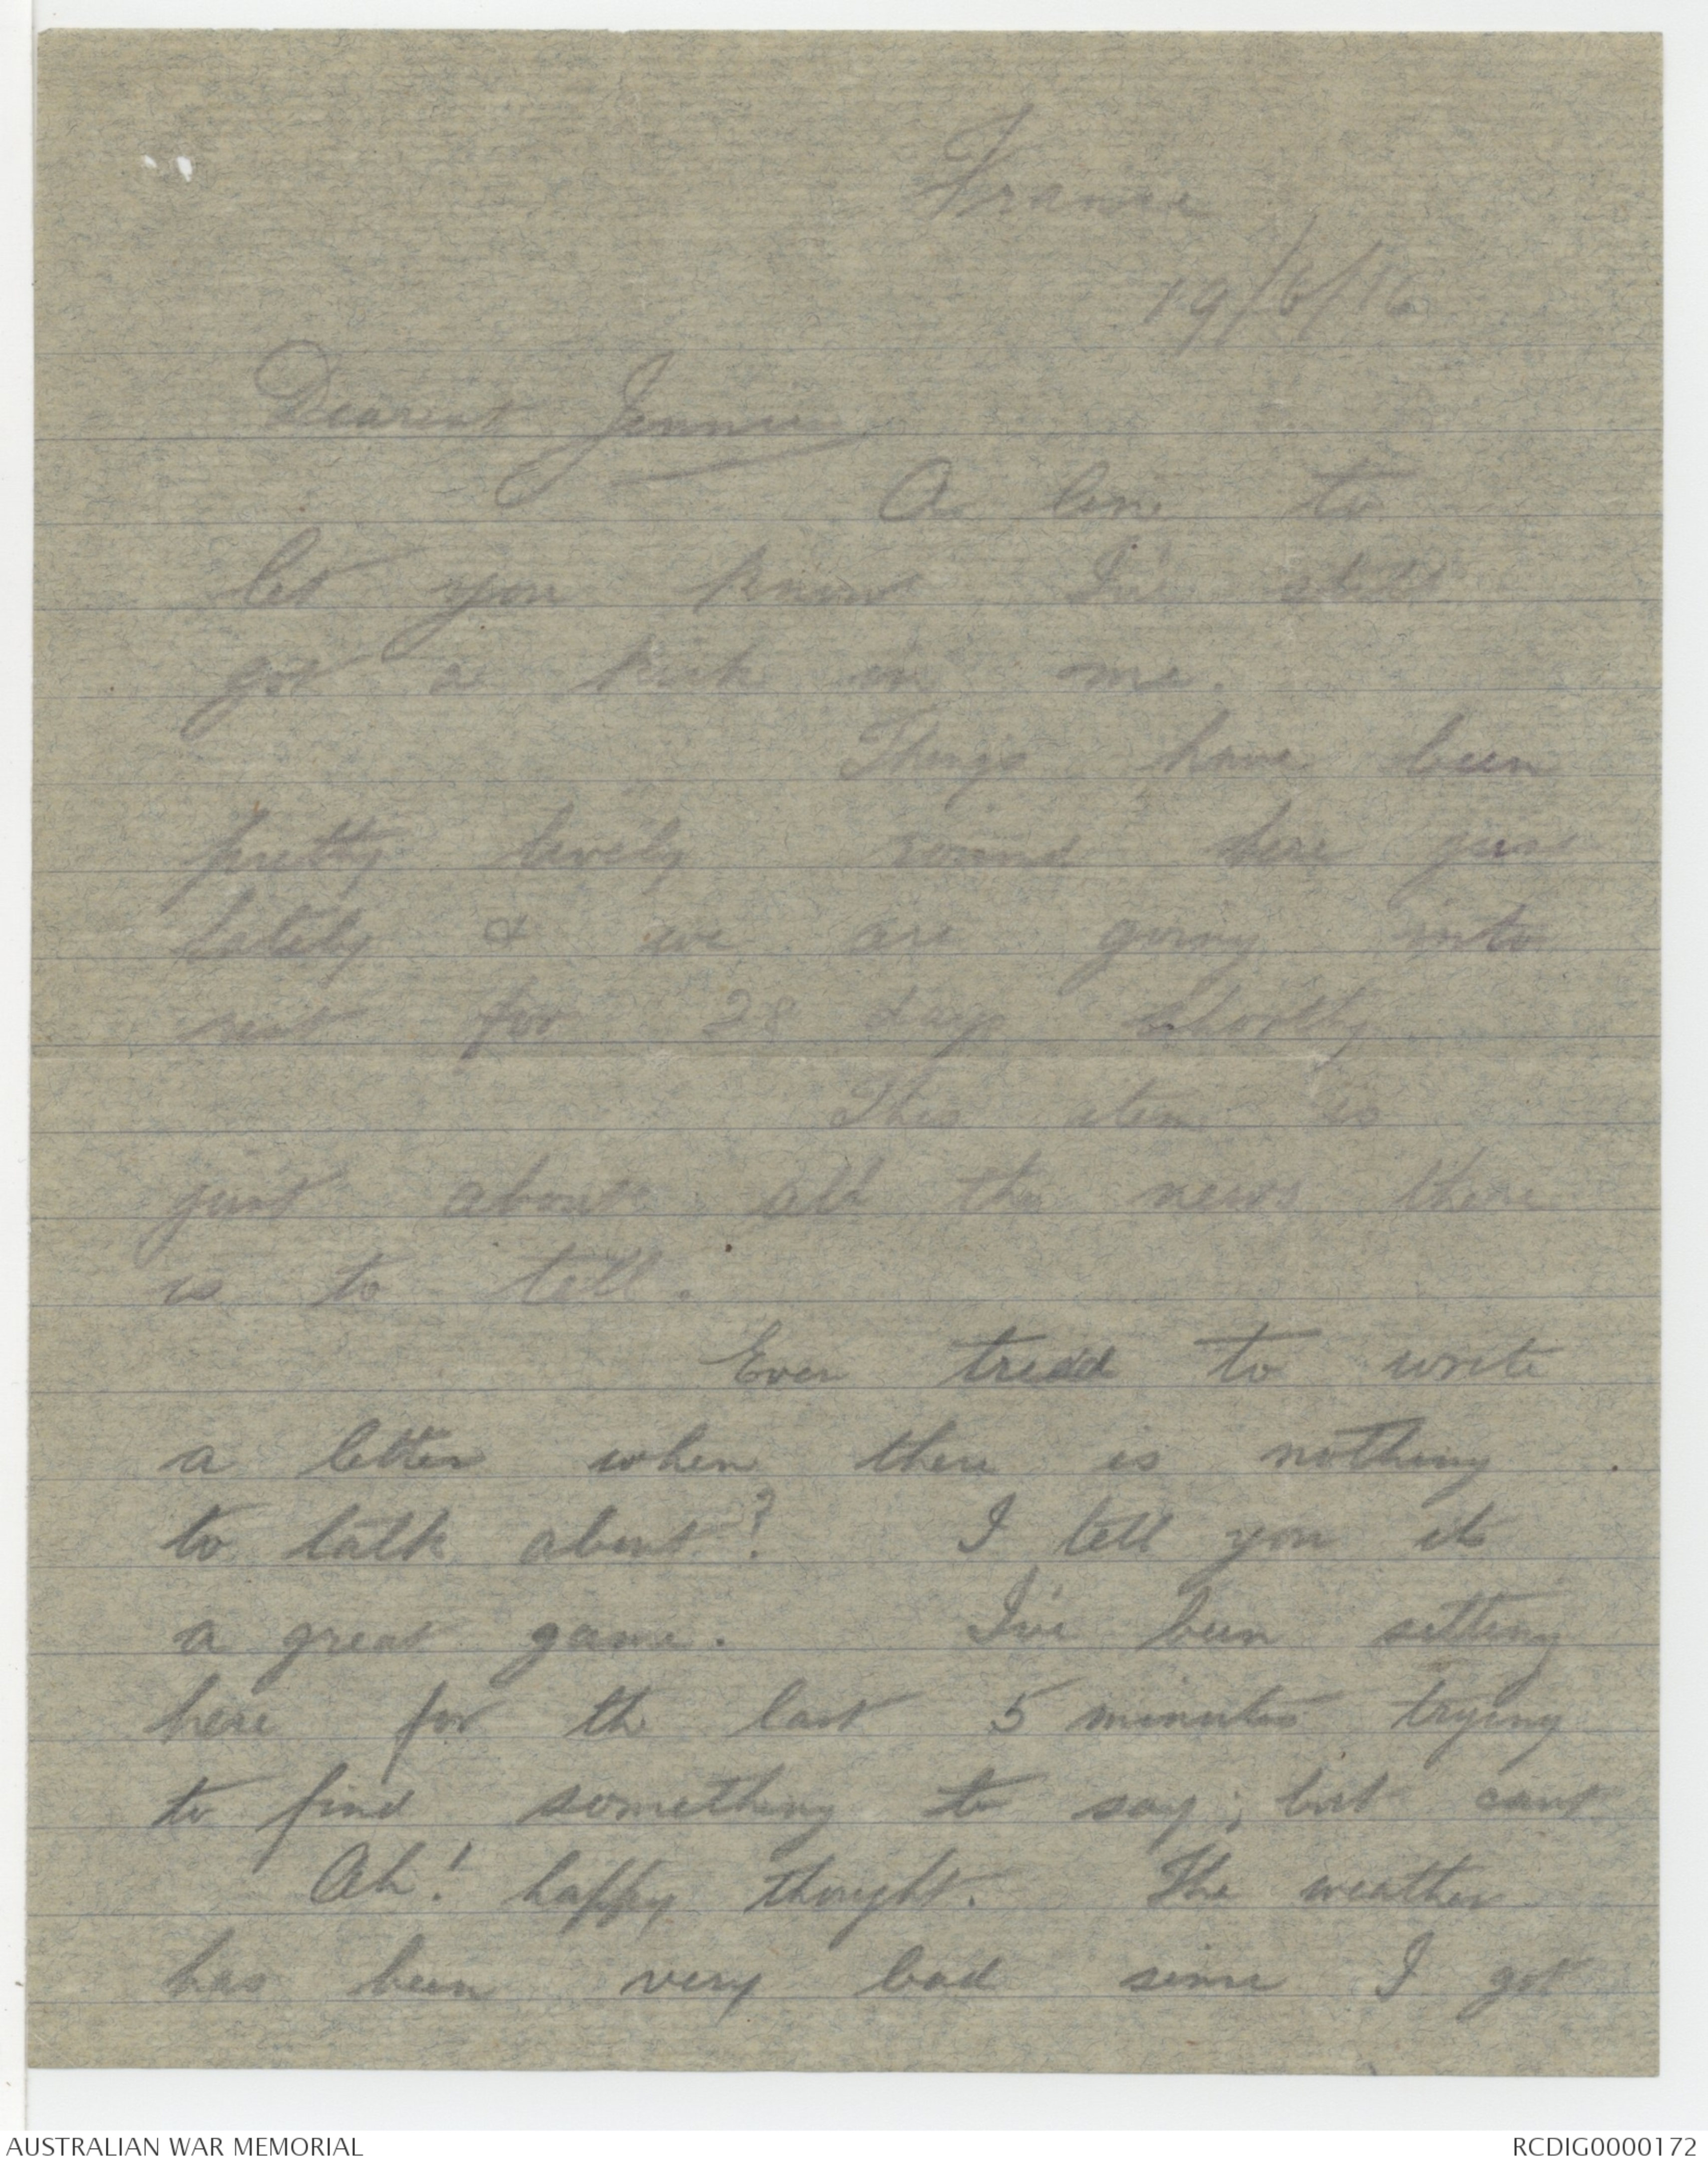 France
19/6/16
Dearest Jennie
A line to
let you know I've still
got a kick in me.
Things have been
pretty lively round here just
lately & we are going into
rest for 28 days shortly
This item is
just about all the news there
is to tell.
Ever tried to write
a letter when there is nothing
to talk about? I tell you its
a great game. I've been sitting
here for the last 5 minutes trying
to find something to say; but cant
Ah! happy thought. The weather
has been very bad since I got
AUSTRALIAN WAR MEMORIAL
RCDIG0000172